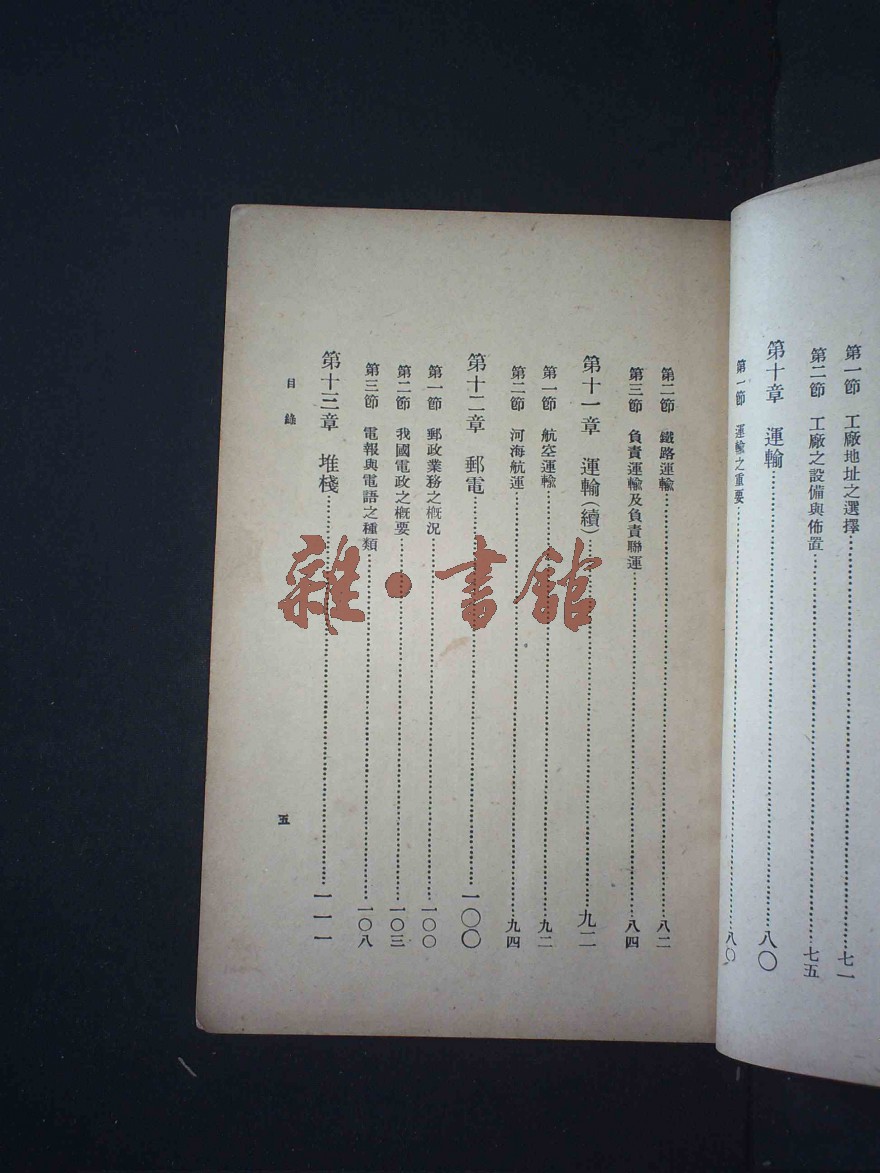 第一節　工廠地址之選擇………七一
第二節　工廠之設備與佈置………七五
第十章　運輸………八〇
第一節　運輸之重要………八〇
第二節　鐵路運輸………八二
第三節　負責運輸及負責聯運………八四
第十一章　運輸（續）………九二
第一節　航空運輸………九二
第二節　河海航運………九四
第十二章　郵電………一〇〇
第一節　郵政業務之概況………一〇〇
第二節　我國電政之概要………一〇三
第三節　電報與電語之種類………一〇八
第十三章　堆棧………一一一
目錄
五
雜·書館